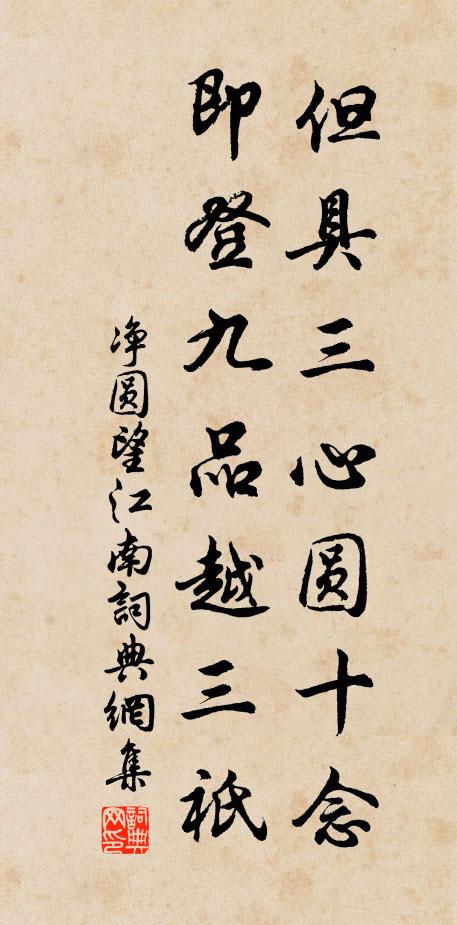 但具三心圆十念
即登九品越三祇
净圆望江南詞典網集
詞典网印